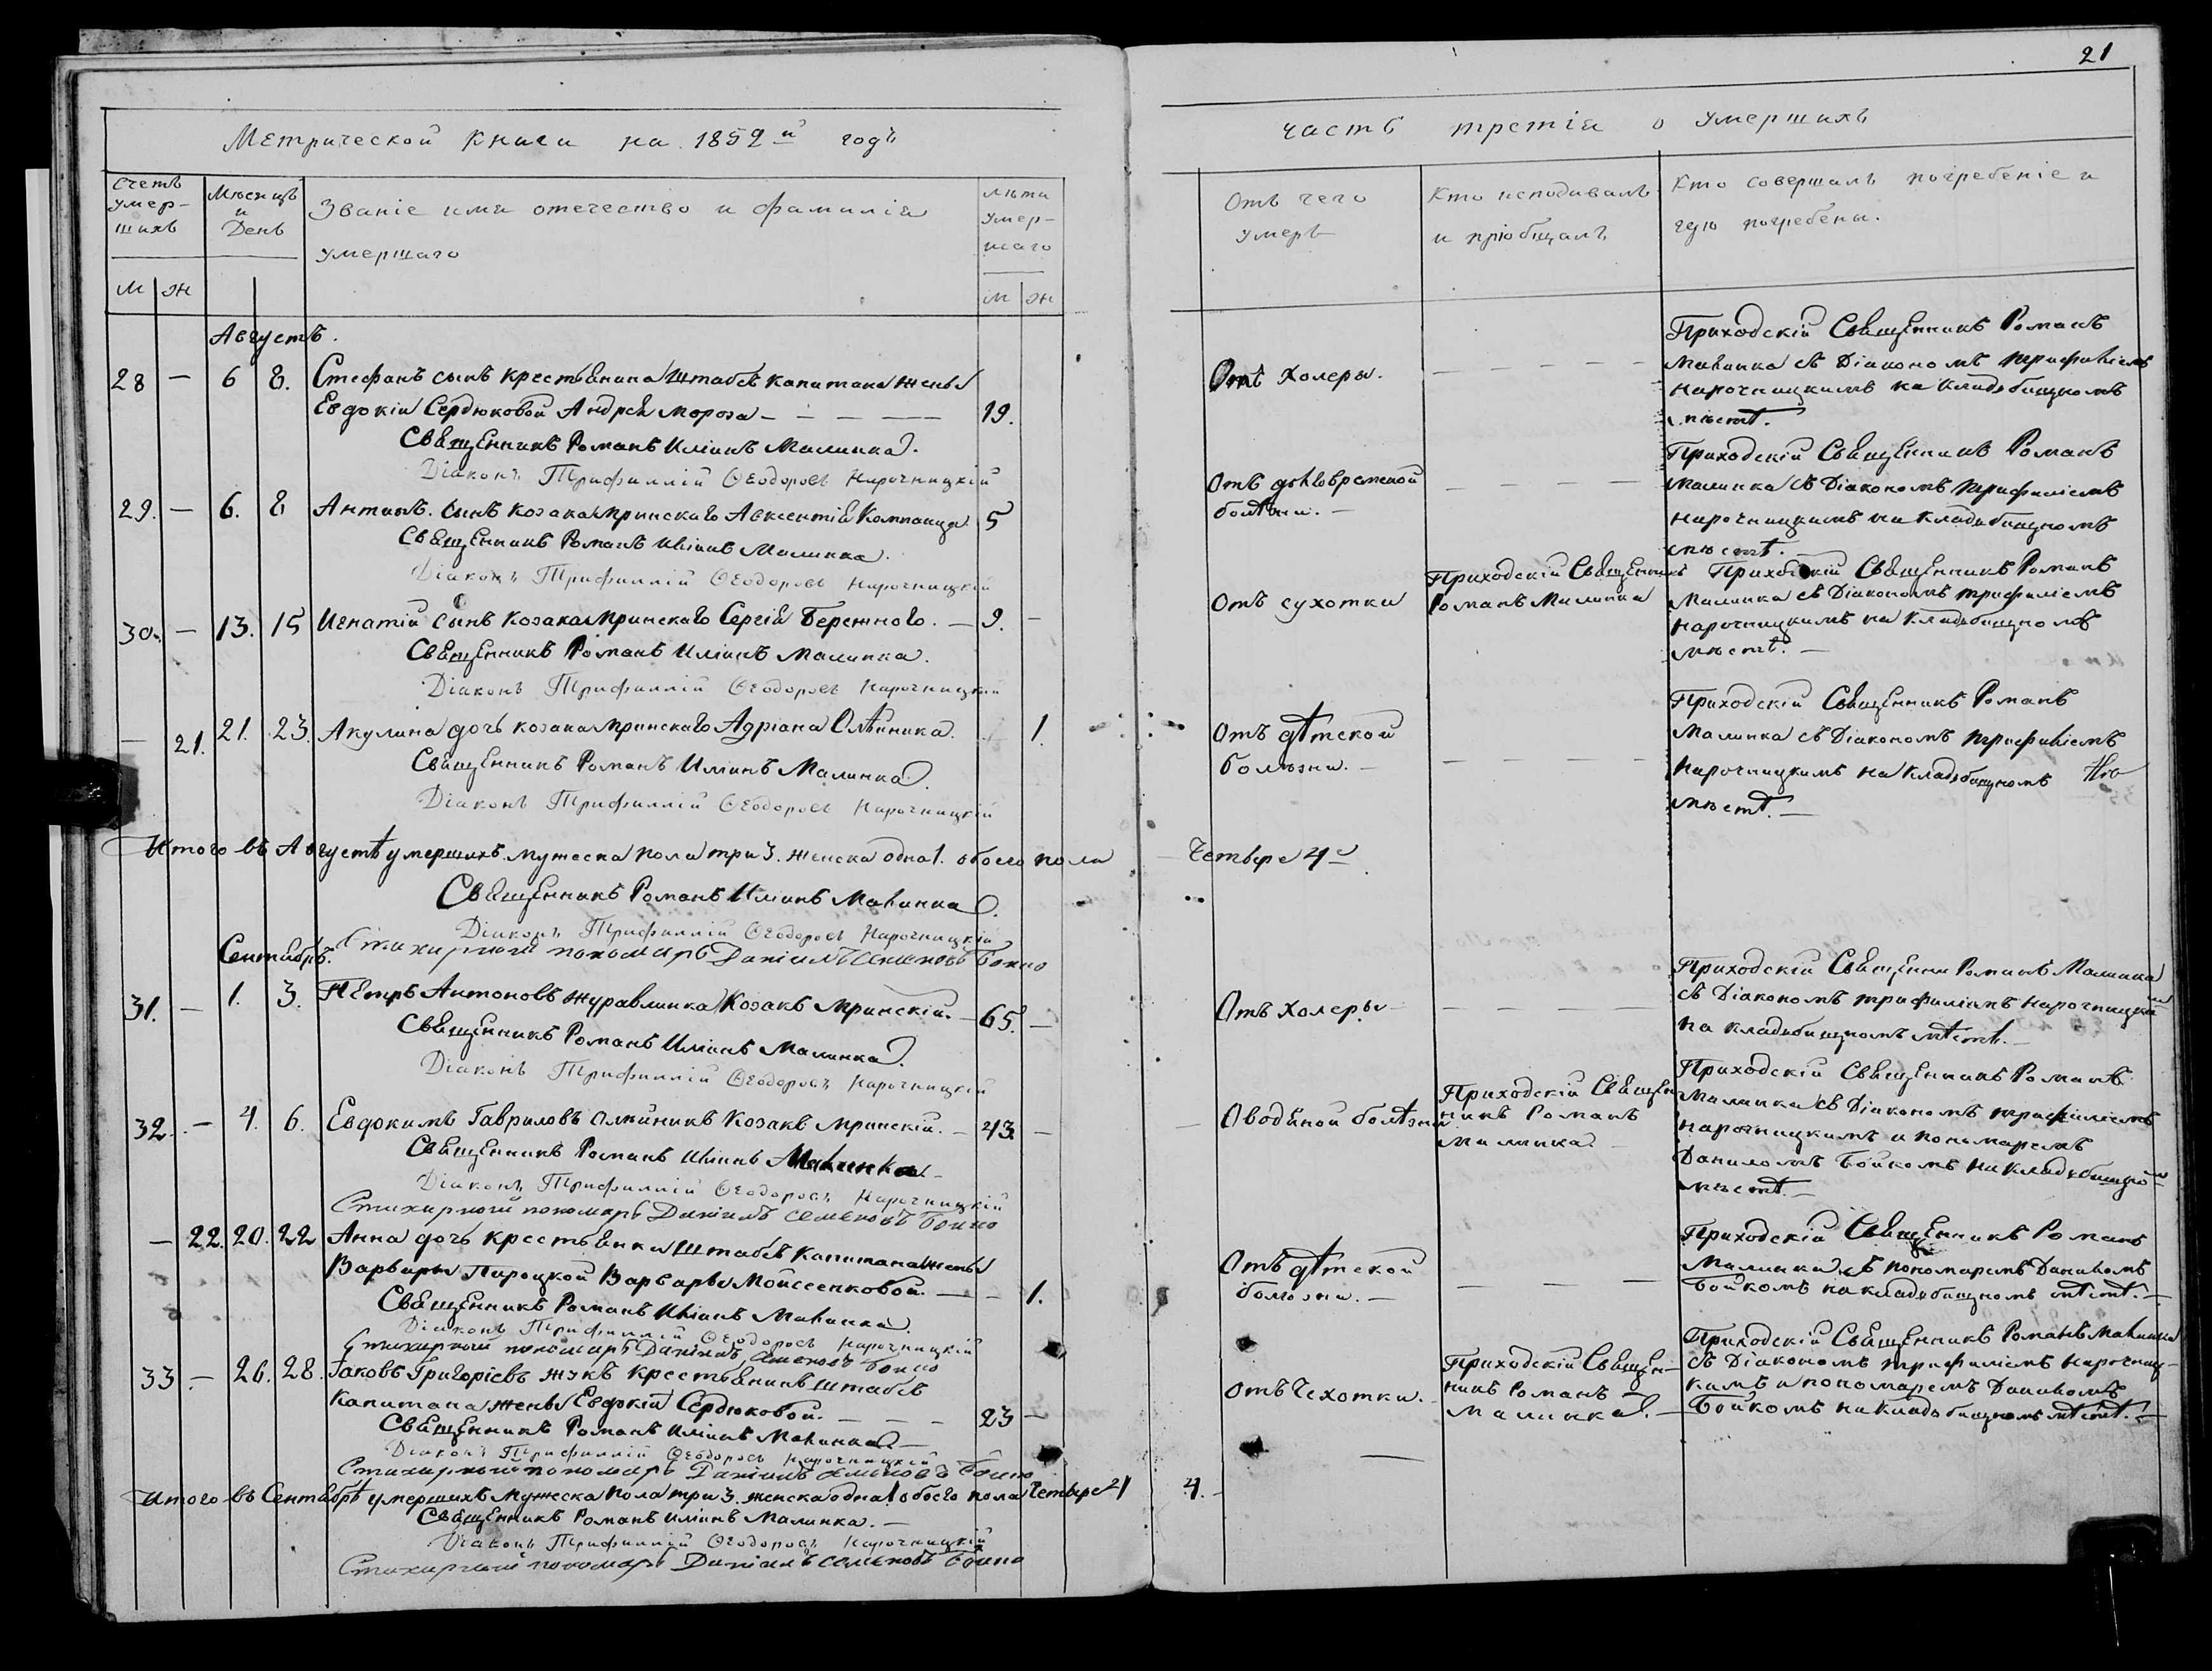 21
Метрической книги на 1852й годъ
Счетъ умершихъ
Мѣсяцъ и День
Званіе имя отечество и фамилія умершаго
лѣта умершаго
м ж
м ж
Августъ.
28 — 6 8. Стефанъ сынъ крестьянина штабсъ капитана жены
Евдокіи Сердюковой Андрея Мороза — — — — 19.
Священникъ Романъ Иліинъ Малинка.
Діаконъ Трифиллій Ѳеодоровъ Нарочницкій
29. — 6. 8 Антипъ. сынъ козака Мринскаго Авксентія Компанца 5
Священникъ Романъ Иліинъ Малинка.
Діаконъ Трифиллій Ѳеодоровъ Нарочницкій
30. — 13. 15 Игнатій сынъ козака Мринскаго Сергія Бережного. — 9. —
Священникъ Романъ Иліинъ Малинка.
Діаконъ Трифиллій Ѳеодоровъ Нарочницкій
— 21. 21. 23. Акулина дочь козака Мринскаго Адріана Олѣйника. 1.
Священникъ Романъ Иліинъ Малинка.
Діаконъ Трифиллій Ѳеодоровъ Нарочницкій
Итого въ Августѣ умершихъ мужеска пола три 3. женска одна 1. обоего пола
Священникъ Романъ Иліинъ Малинка.
Діаконъ Трифиллій Ѳеодоровъ Нарочницкій
Стихарный пономарь Даніилъ Семеновъ Бойко
Сентябрь.
31. — 1. 3. Петръ Антоновъ Журавлинка Козакъ Мринскій. — 65. —
Священникъ Романъ Иліинъ Малинка.
Діаконъ Трифиллій Ѳеодоровъ Нарочницкій
32. — 4. 6. Евдокимъ Гавриловъ Олѣйникъ Козакъ Мринскій. — 43. —
Священникъ Романъ Иліинъ Малинка. —
Діаконъ Трифиллій Ѳеодоровъ Нарочницкій
Стихарный пономарь Даніилъ Семеновъ Бойко
— 22. 20. 22 Анна дочь крестьянки штабсъ капитана жены
Варвары Пироцкой Варвары Мойсеенковой. — — 1.
Священникъ Романъ Иліинъ Малинка.
Діаконъ Трифиллій Ѳеодоровъ Нарочницкій
Стихарный пономарь Даніилъ Семеновъ Бойко
33. — 26. 28. Іаковъ Григоріевъ Жукъ крестьянинъ штабсъ
капитана жены Евдокіи Сердюковой. — — — 23 —
Священникъ Романъ Иліинъ Малинка. —
Діаконъ Трифиллій Ѳеодоровъ Нарочницкій
Стихарный пономарь Даніилъ Семеновъ Бойко
Итого въ Сентябрѣ умершихъ мужеска пола три 3. женска одна 1 обоего пола четыре 4
Священникъ Романъ Иліинъ Малинка. —
Діаконъ Трифиллій Ѳеодоровъ Нарочницкій
Стихарный пономарь Даніилъ Семеновъ Бойко
часть третія о умершихъ
Отъ чего умеръ
Кто исповѣдывалъ и пріобщалъ
Кто совершалъ погребеніе и
гдѣ погребены.
Отъ холеры. — — — —
Приходскій Священникъ Романъ
Малинка съ Діакономъ Трифиліемъ
Нарочницкимъ на кладобищномъ
мѣстѣ.
Отъ
болѣзни. — — — — —
Приходскій Священникъ Романъ
Малинка съ Діакономъ Трифиліемъ
Нарочницкимъ на кладобищномъ
мѣстѣ. —
Отъ сухотки
Приходскій Священникъ
Романъ Малинка
Приходскій Священникъ Романъ
Малинка съ Діакономъ Трифиліемъ
Нарочницкимъ на кладобищномъ
мѣстѣ. —
Отъ дѣтской
болѣзни. — — — — —
Приходскій Священникъ Романъ
Малинка съ Діакономъ Трифиліемъ
Нарочницкимъ на кладобищномъ
мѣстѣ. —
Четыре 4
Отъ холеры — — — —
Приходскій Священни Романъ Малинка
съ Діакономъ Трифиліемъ Нарочницким
на кладобищномъ мѣстѣ. —
О водяной болѣзни
Приходскій Священ
никъ Романъ
Малинка. —
Приходскій Священникъ Романъ
Малинка съ Діакономъ Трифиліемъ
Нарочницкимъ и пономаремъ
Даниломъ Бойкомъ на кладобищном
мѣстѣ. —
Отъ дѣтской
болѣзни. — — — —
Приходскій Священникъ Романъ
Малинка съ пономаремъ Даниломъ
Бойкомъ на кладобищномъ мѣстѣ. —
Отъ Чехотки.
Приходскій Священ-
никъ Романъ
Малинка. —
Приходскій Священникъ Романъ Малинка
съ Діакономъ Трифиліемъ Нарочниц-
кимъ и пономаремъ Даниломъ
Бойкомъ на кладобищномъ мѣстѣ. —
4. —